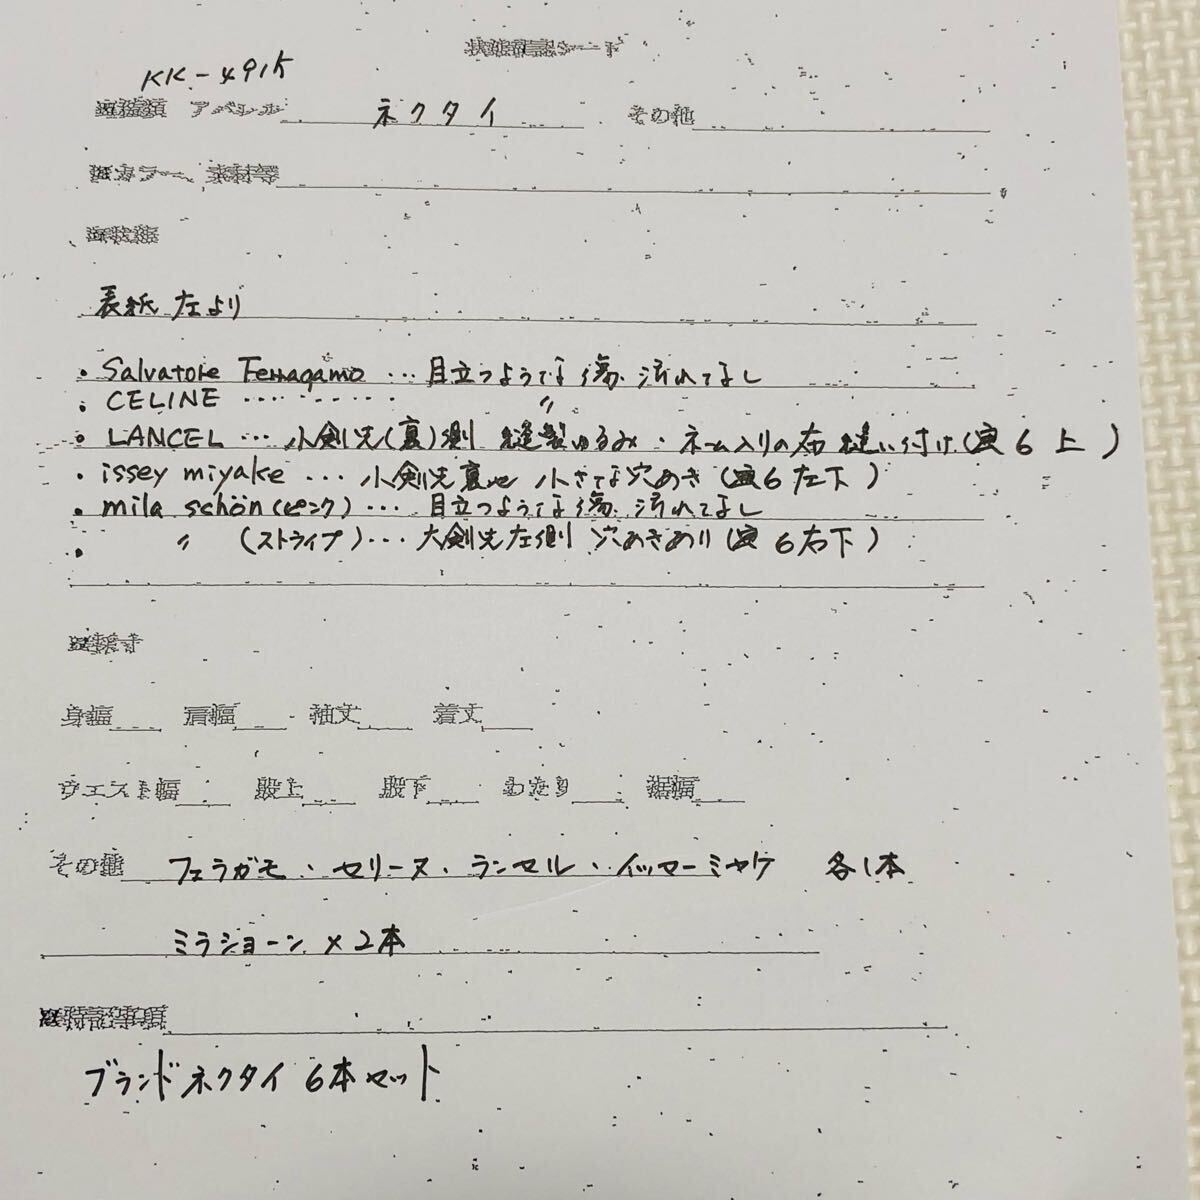 状態確認シート
KK-491K
種類 アパレル ネクタイ その他
カラー、素材等
状態
表紙 左より
・Salvatore Ferragamo … 目立つような傷、汚れてなし
・CELINE ………… 〃
・LANCEL … 小剣先(裏)側 縫製ゆるみ・ネーム入りの布 縫い付け(画6 上)
・issey miyake … 小剣先裏に 小さな穴あき(画6左下)
・mila schön(ピンク)… 目立つような傷、汚れてなし
・ 〃 (ストライプ)… 大剣先左側 穴あきあり(画6右下)
採寸
身幅 肩幅 袖丈 着丈
ウエスト幅 股上 股下 わたり 裾幅
その他 フェラガモ・セリーヌ・ランセル・イッセーミヤケ 各1本
ミラショーン×2本
特記事項
ブランドネクタイ 6本セット